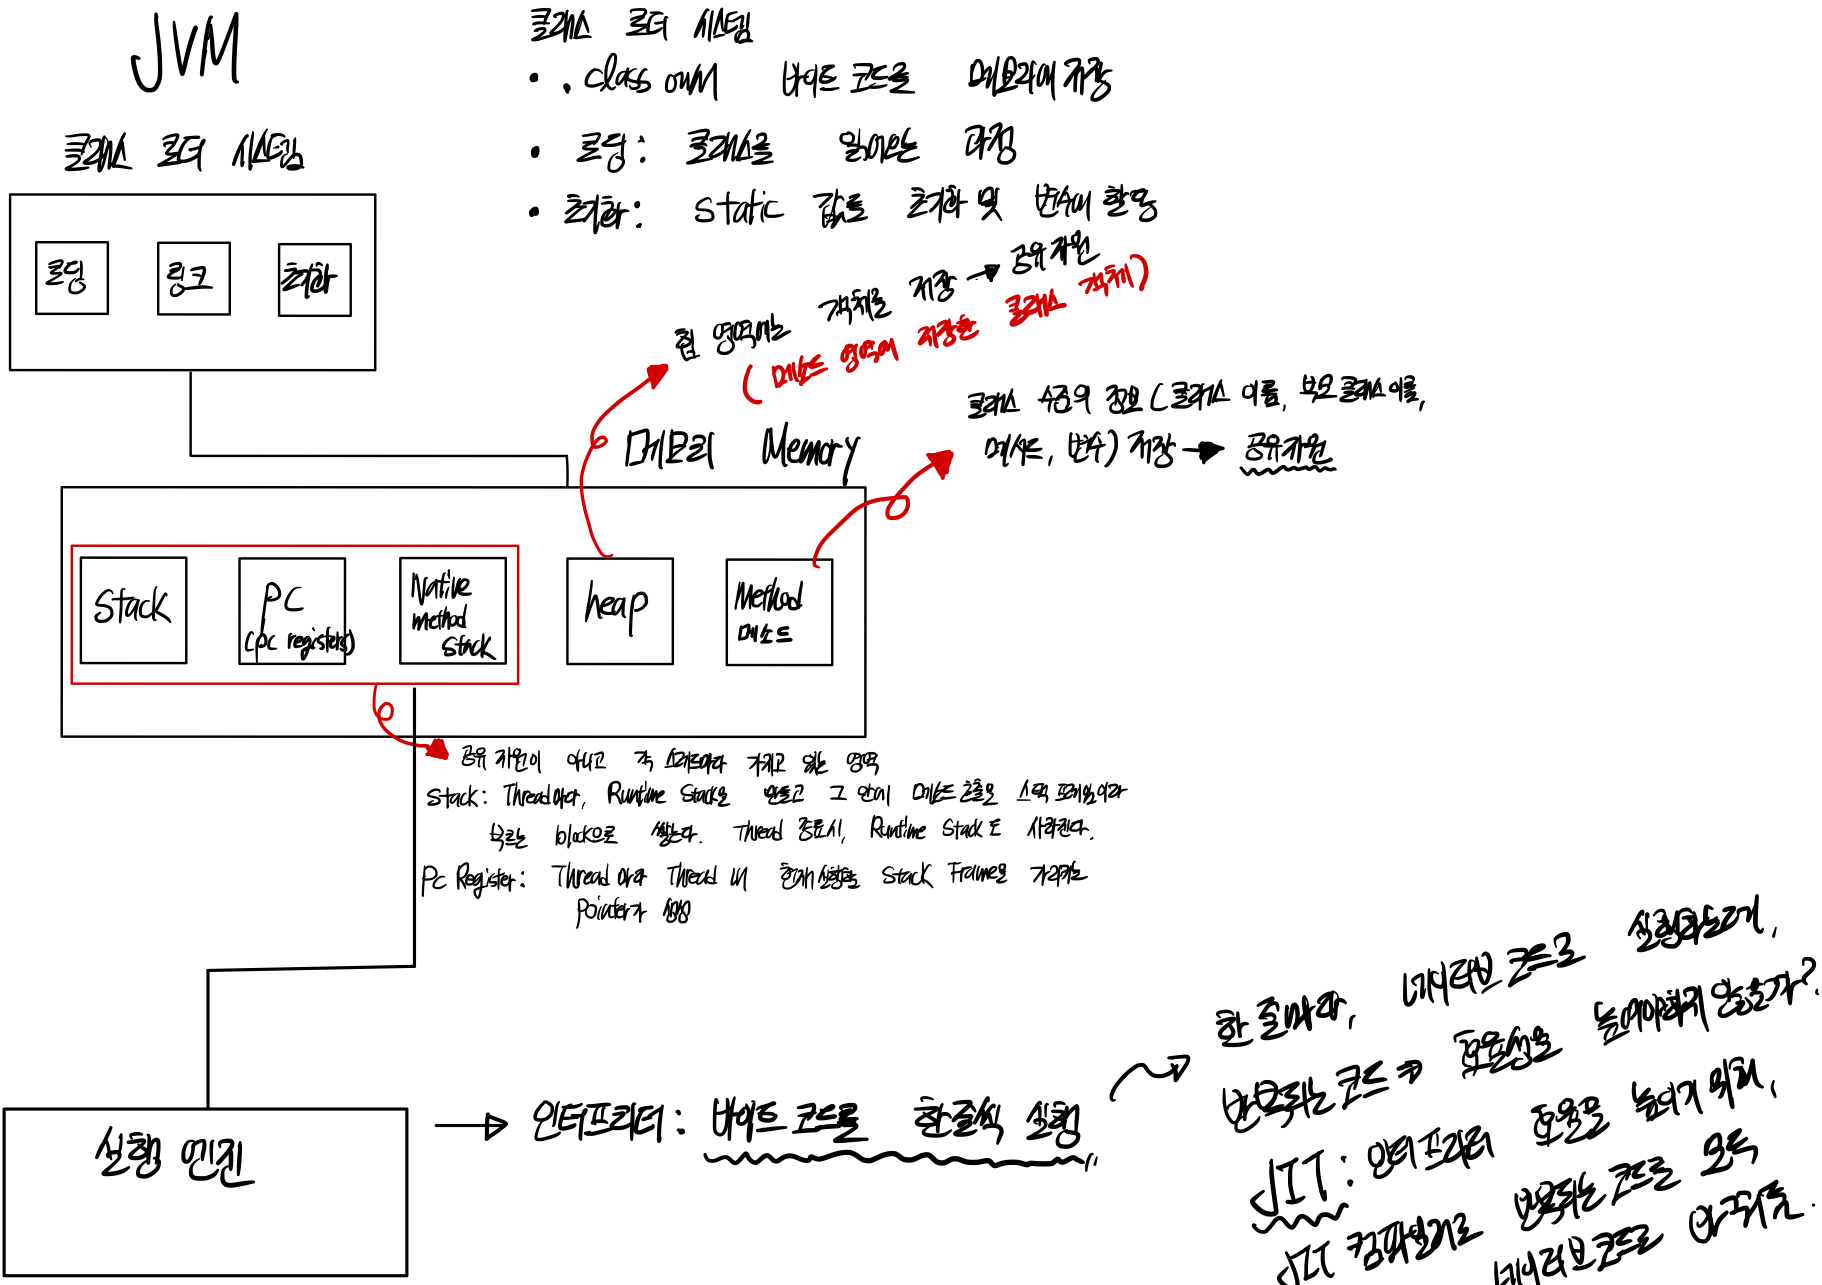 JVM
클래스 로더 시스템
로딩
링크
초기화
클래스 로더 시스템
• .class 에서 바이트 코드를 메모리에 저장
• 로딩 : 클래스를 읽어오는 과정
• 초기화 : Static 값들 초기화 및 변수에 할당
힙 영역에는 객체를 저장 → 공유 자원
( 메소드 영역에 저장한 클래스 객체 )
메모리 Memory
클래스 수준의 정보 ( 클래스 이름, 부모 클래스 이름,
메서드, 변수 ) 저장 → 공유자원
Stack
PC
(pc registers)
Native
method
Stack
heap
Method
메소드
공유 자원이 아니고 각 스레드마다 가지고 있는 영역
Stack : Thread마다, Runtime Stack을 만들고 그 안에 메소드 호출을 스택 프레임이라
부르는 block으로 쌓는다. Thread 종료시, Runtime Stack도 사라진다.
PC Register : Thread 마다 Thread 내 현재 실행할 Stack Frame을 가리키는
Pointer가 생성
실행 엔진
→ 인터프리터 : 바이트 코드를 한줄씩 실행
한 줄마다, 네이티브 코드로 실행하는데,
반복되는 코드 → 효율성을 높여야하지 않을까?
JIT : 인터프리터 효율을 높이기 위해,
JIT 컴파일러로 반복되는 코드를 모두
네이티브코드로 바꿔둠.